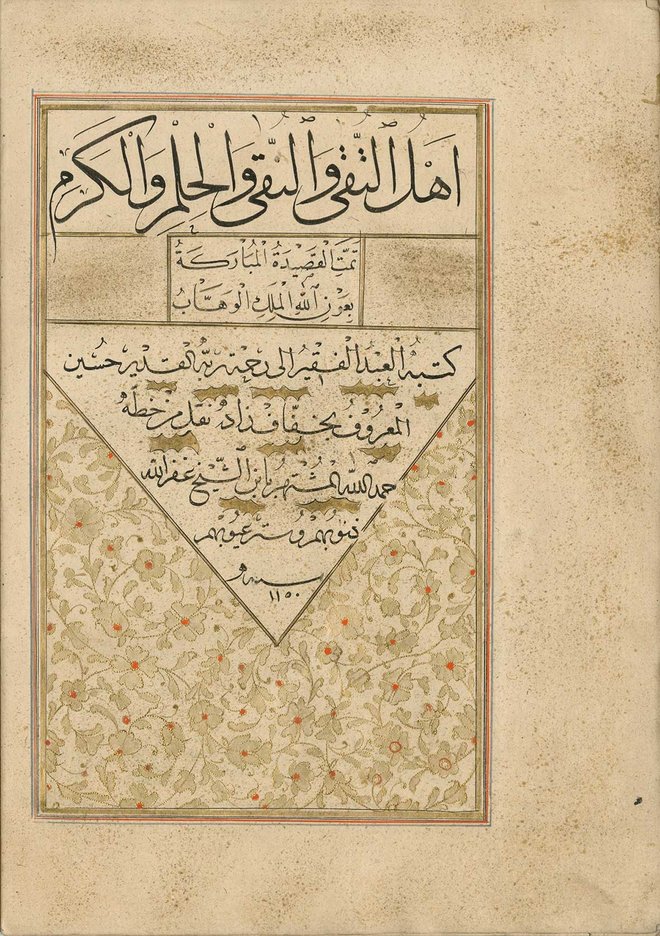 اَهْلُ التُّقٰى وَالنُّقٰى وَالْحِلْمِ وَالْكَرَمِ
تَمَّتِ الْقَصِيْدَةُ الْمُبَارَكَةُ
بِعَوْنِ اللّٰهِ الْمَلِكِ الْوَهَّابِ
كتبه العبد الفقير الى رحمة ربه القدير حسين
المعروف بخفاف زاده نقل من خطه
حمد الله المشتهر بابن الشيخ غفر الله
ذنوبهم وستر عيوبهم
سنه
١١٥٠